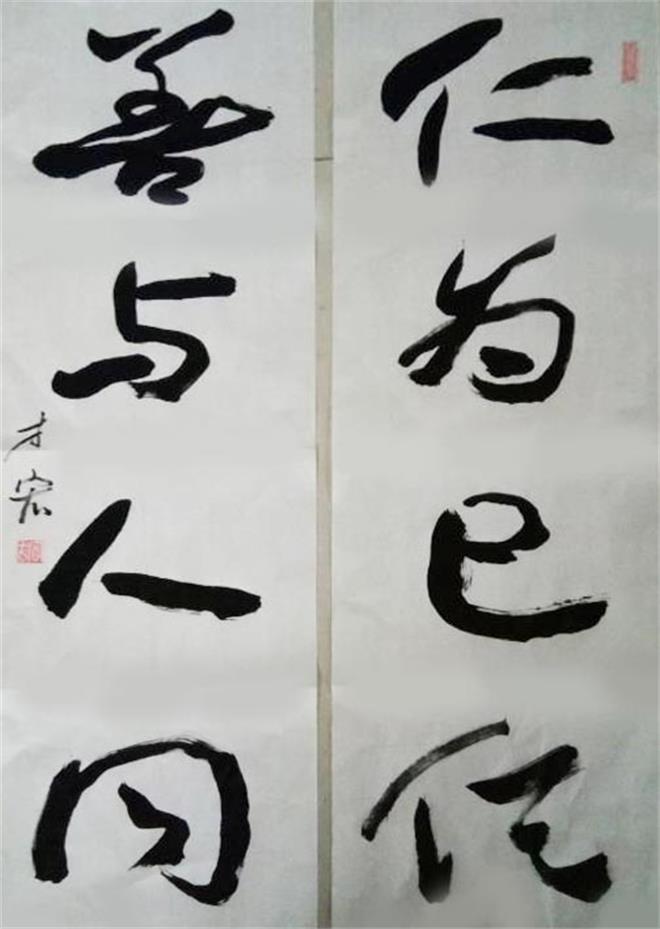 仁为己任
善与人同
才宏